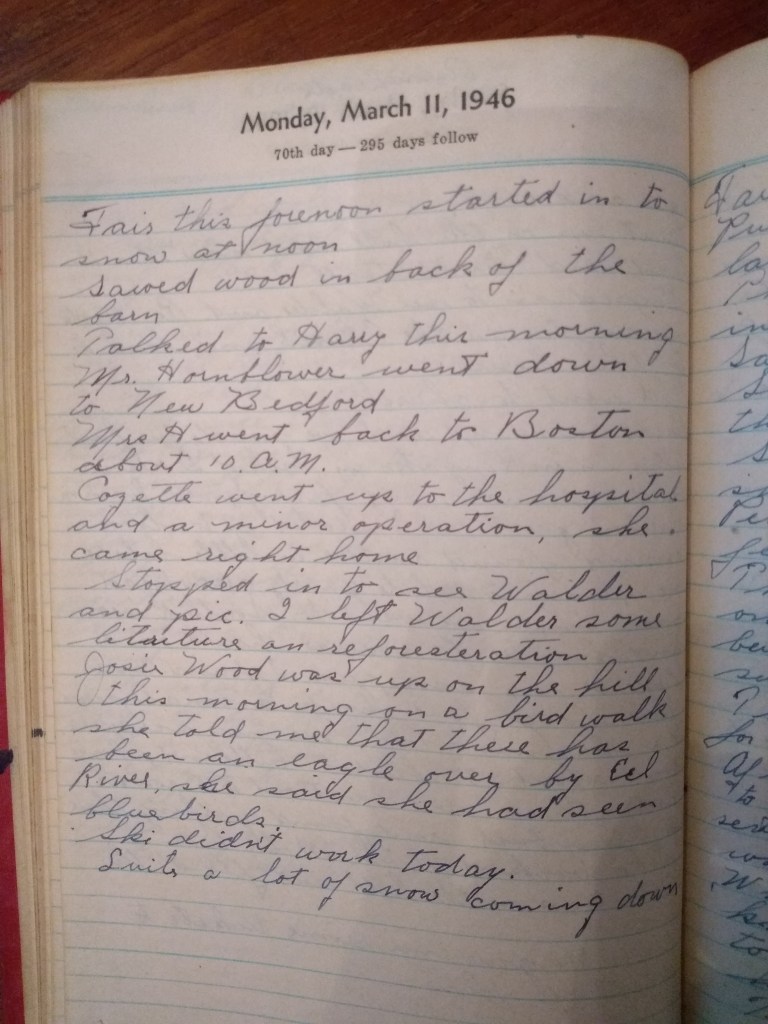 Monday, March 11, 1946
70th day — 295 days follow
Fair this forenoon started in to
snow at noon
Sawed wood in back of the
barn
Talked to Harry this morning
Mr. Hornblower went down
to New Bedford
Mrs H went back to Boston
about 10. A.M.
Cozette went up to the hospital
and a minor operation, she
came right home
Stopped in to see Walder
and pic. I left Walder some
litaiture an reforesteration
Josie Wood was up on the hill
this morning on a bird walk
she told me that there has
been an eagle over by Eel
River, she said she had seen
bluebirds.
Ski didn't work today.
Suits a lot of snow coming down